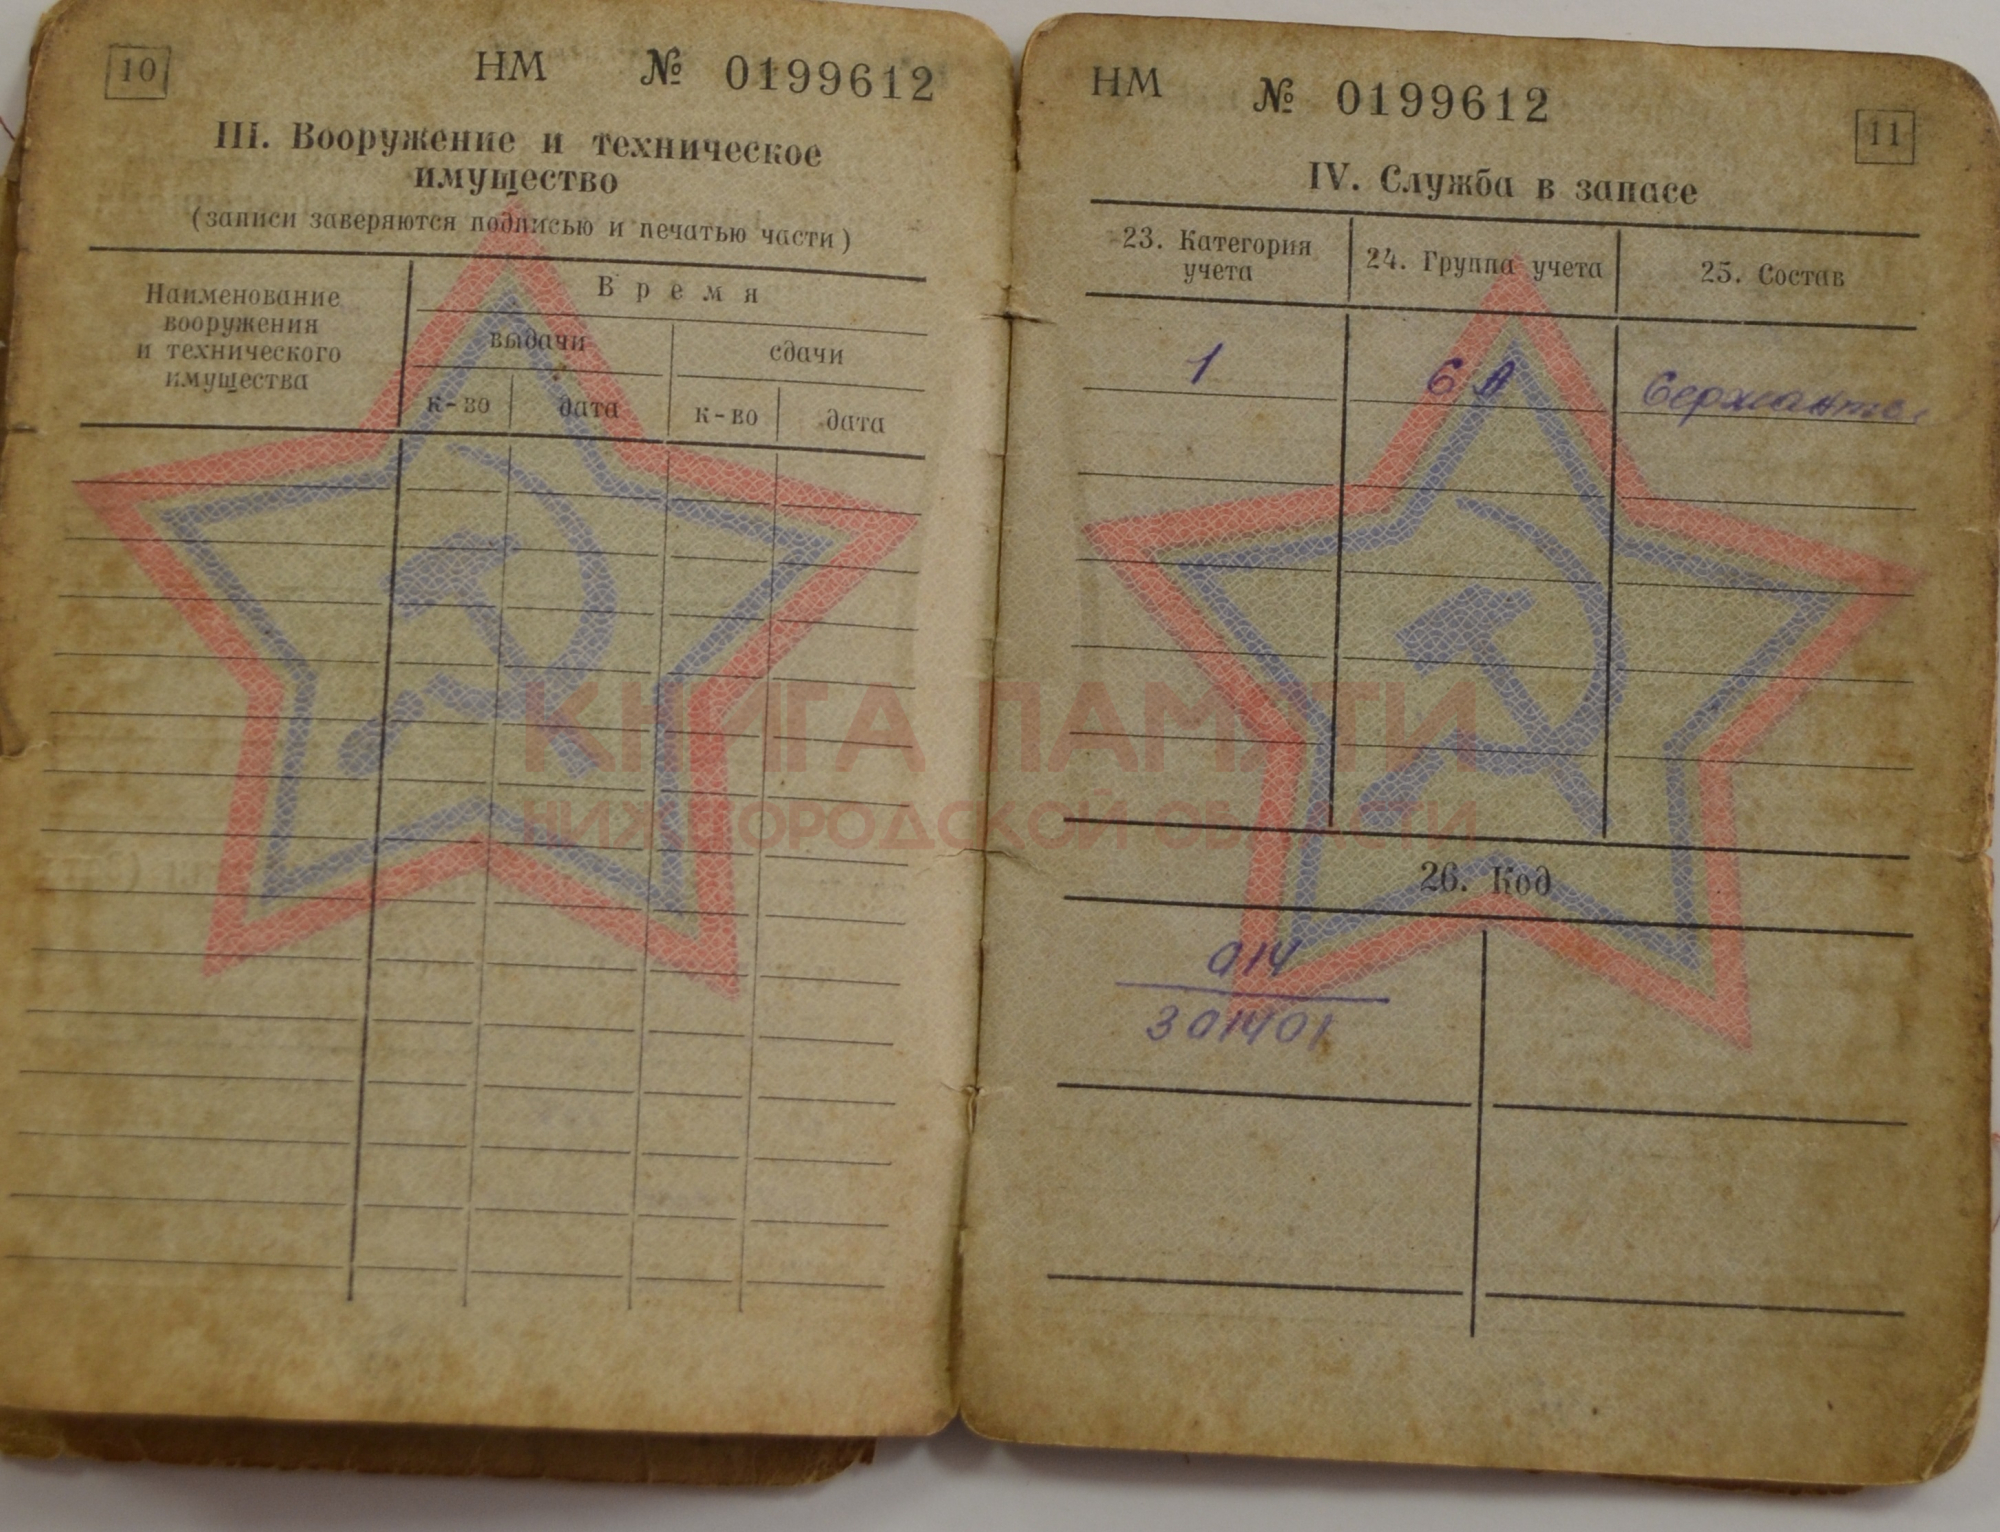 10
НМ № 0199612
III. Вооружение и техническое
имущество
(записи заверяются подписью и печатью части)
Наименование
вооружения
и технического
имущества
Время
выдачи
сдачи
к-во
дата
к-во
дата
НМ № 0199612
11
IV. Служба в запасе
23. Категория
учета
24. Группа учета
25. Состав
1
6 А
Сержанты
26. Код
014
301401
КНИГА ПАМЯТИ
НИЖЕГОРОДСКОЙ ОБЛАСТИ